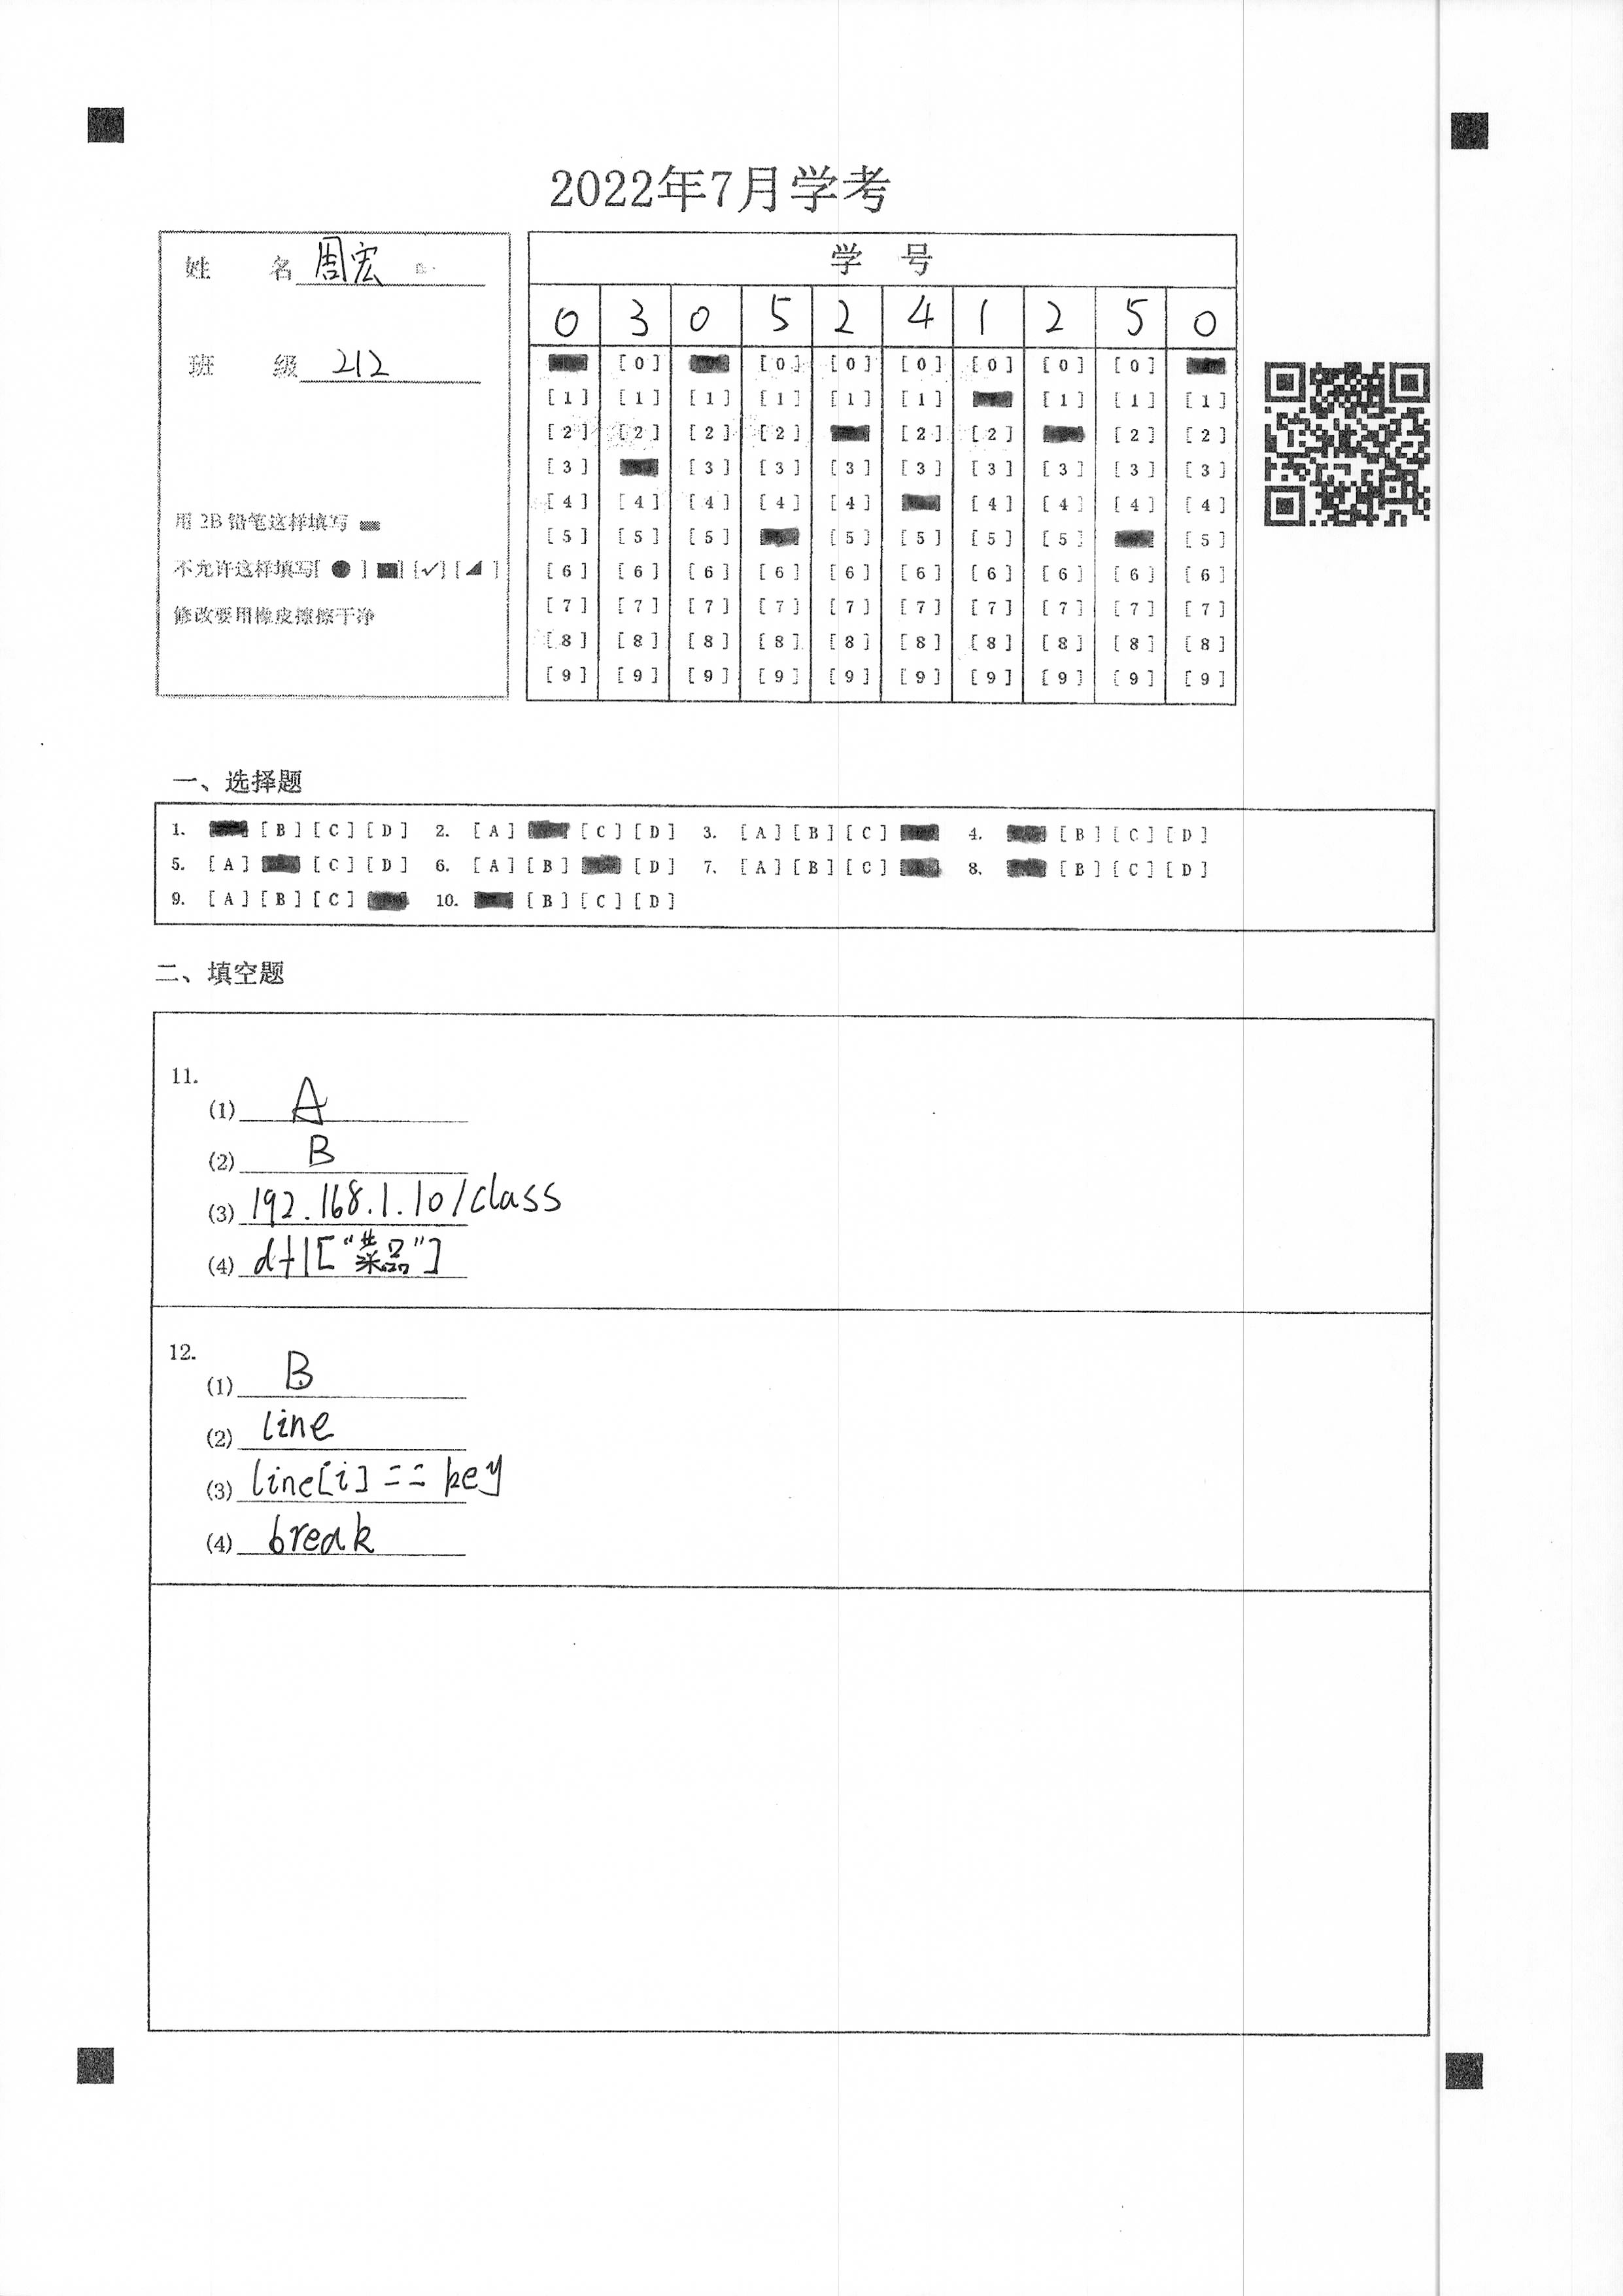 2022年7月学考
姓 名 周宏
班 级 212
用 2B 铅笔这样填写
不允许这样填写[ ● ] [■] [✓] [◢ ]
修改要用橡皮擦擦干净
学 号
0 3 0 5 2 4 1 2 5 0
[0] [0] [0] [0] [0] [0] [0]
[1] [1] [1] [1] [1] [1] [1] [1] [1]
[2] [2] [2] [2] [2] [2] [2] [2]
[3] [3] [3] [3] [3] [3] [3] [3] [3]
[4] [4] [4] [4] [4] [4] [4] [4] [4]
[5] [5] [5] [5] [5] [5] [5] [5]
[6] [6] [6] [6] [6] [6] [6] [6] [6] [6]
[7] [7] [7] [7] [7] [7] [7] [7] [7] [7]
[8] [8] [8] [8] [8] [8] [8] [8] [8] [8]
[9] [9] [9] [9] [9] [9] [9] [9] [9] [9]
一、选择题
1. [B] [C] [D] 2. [A] [C] [D] 3. [A] [B] [C] 4. [B] [C] [D]
5. [A] [C] [D] 6. [A] [B] [D] 7. [A] [B] [C] 8. [B] [C] [D]
9. [A] [B] [C] 10. [B] [C] [D]
二、填空题
11.
(1) A
(2) B
(3) 192.168.1.10/class
(4) df1["菜品"]
12.
(1) B
(2) line
(3) line[i] == key
(4) break